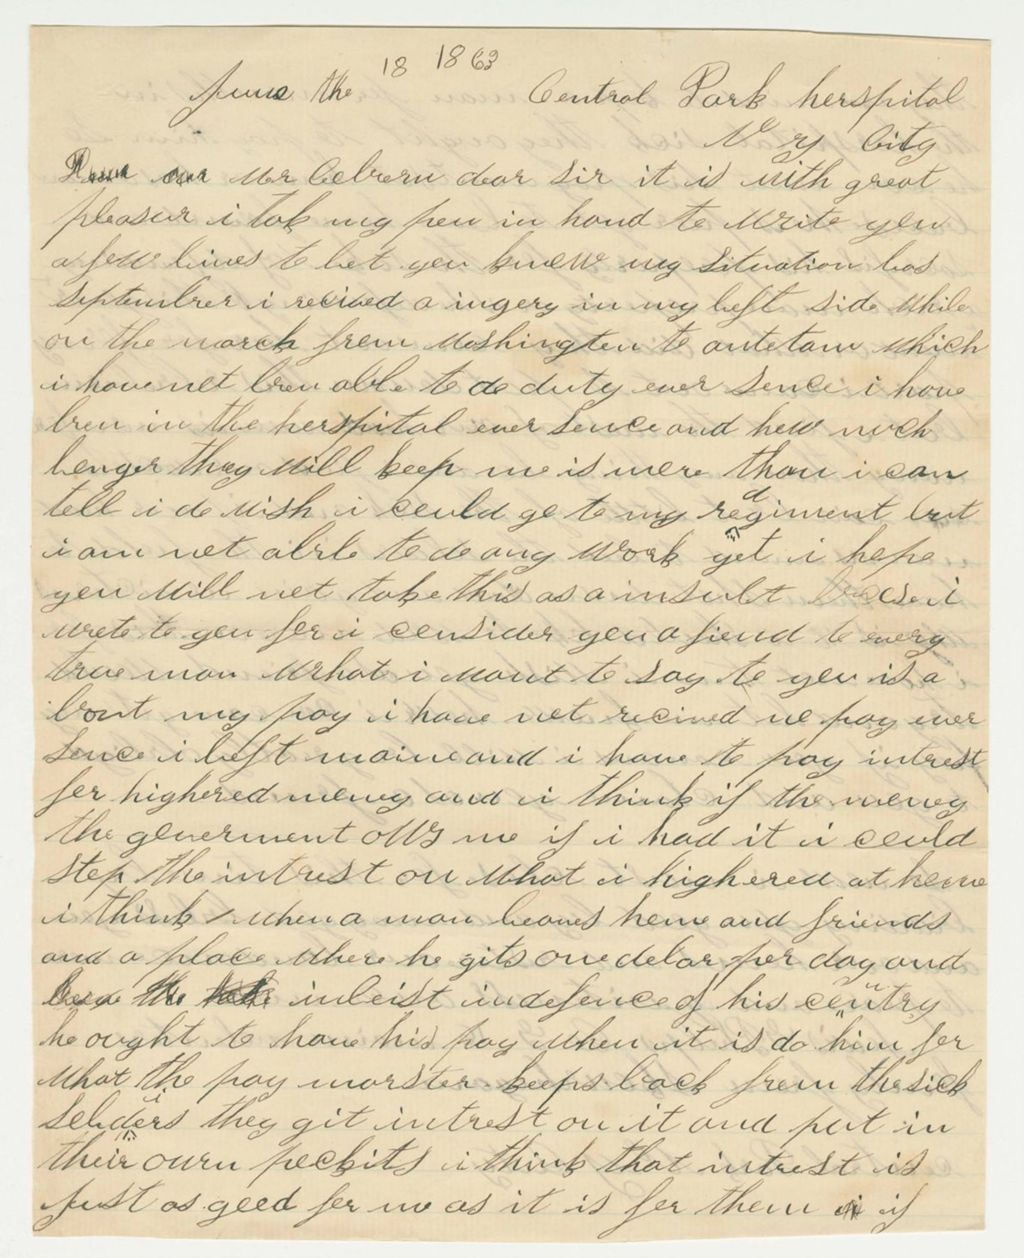 June the 18 1863 Central Park herspital
N y City
Mr Cobrern dear sir it is with great
pleasur i tok my pen in hand to write you
a few lines to let you know my situation las
september i recived a ingery in my left side while
on the march from Washington to antetam which
i have not bren able to do duty ever sence i have
bren in the herspital ever sence and how mch
longer thay will keep me is more than i can
tell i do wish i could go to my regiment but
i am not able to do any work yet i hope
you will not take this as a insult becase i
wrote to you for i consider you a fiend to every
true man what i want to say to you is a
bout my pay i have not recived no pay ever
sence i left maine and i have to pay intrest
for highered money and i think if the money
the goverment ows me if i had it i could
stop the intrest on what i highered at home
i think when a man leaves home and friends
and a place where he gits one dolar per day and
inleist in defence of his cuntry
he ought to have his pay when it is do him for
what the pay marster keeps back from the sick
soldiers they git intrest on it and put in
their ourn pockits i think that intrest is
just as good for me as it is for them if